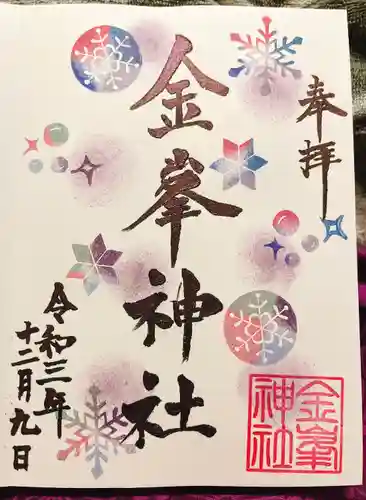 奉拝
金峯神社
令和三年
十二月九日
金峯
神社